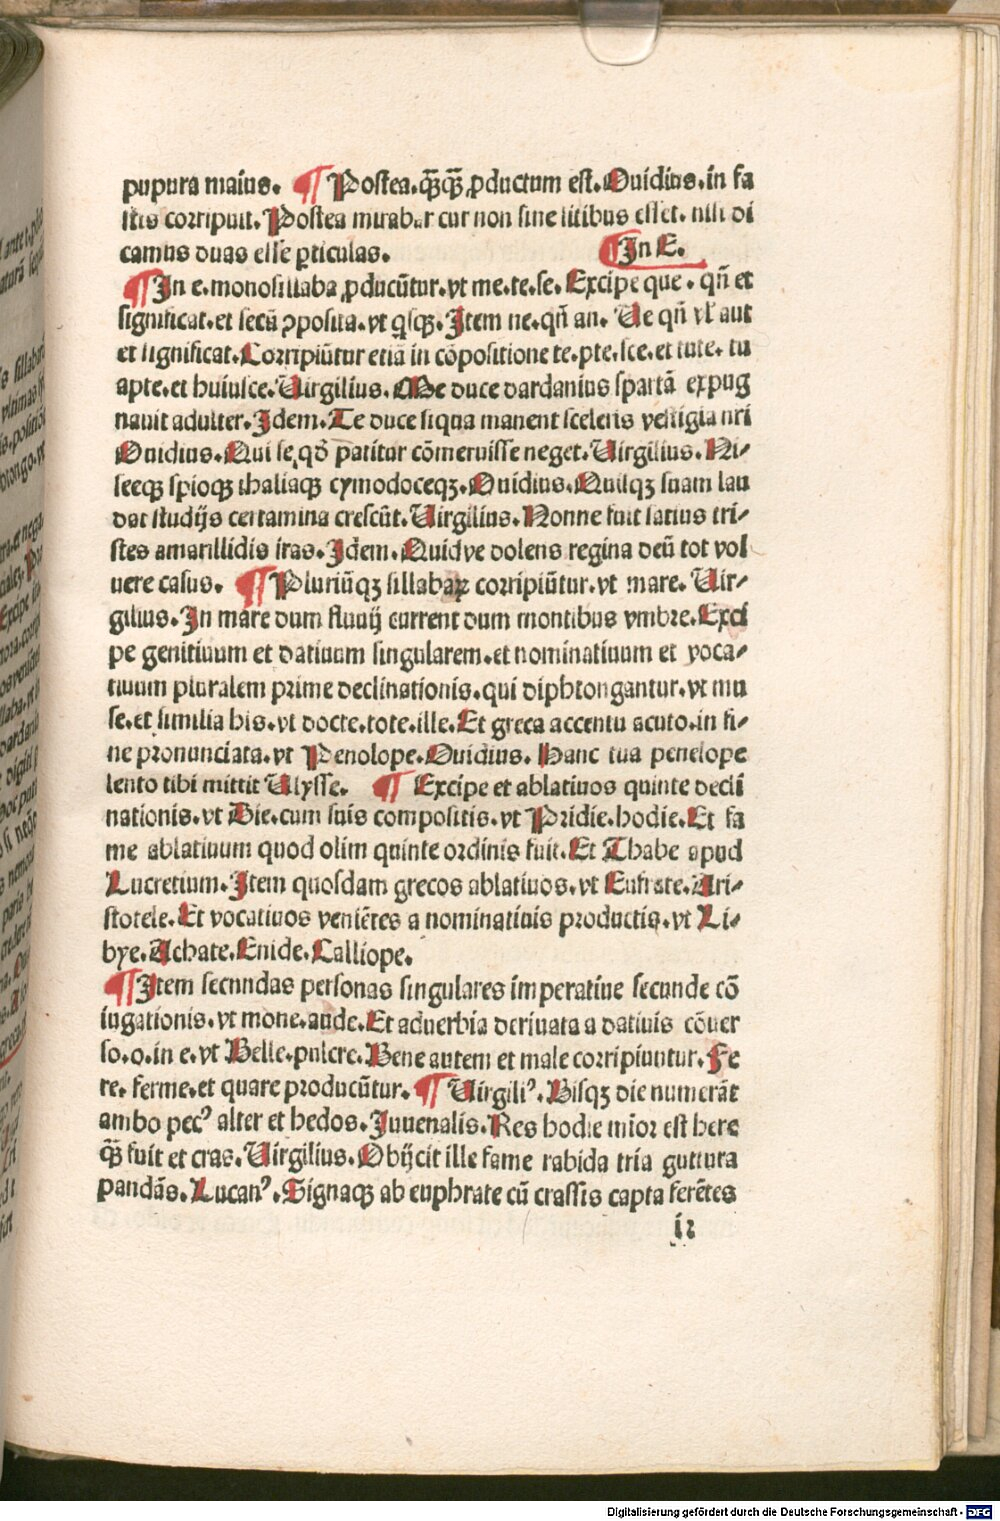 pupura maius. ¶ Postea.q̄ꝙ̄ ꝓductum est. Ouidius.in fa
stis corripuit. Postea mirabar cur non sine litibus esset. nisi di
camus duas esse ꝑticulas. ¶ In E.
¶ In e.monosillaba ꝓducūtur.vt me.te.se. Excipe que. qn̄ et
significat.et secū ꝯposita.vt qͥsqꝫ. Item ne.qn̄ an. Ue qn̄ vl̓ aut
et significat. Corripiūtur etiā in cōpositione te.pte.sce.et tute. tu
apte.et huiusce. Uirgilius. Me duce dardanius spartā expug
nauit adulter. Idem. Te duce siqua manent sceleris vestigia nri
Ouidius. Qui se qd̓ patitur cōmeruisse neget. Uirgilius. Ni⸗
seeqꝫ spioqꝫ thaliaqꝫ cymodoceqꝫ. Ouidius. Quisqꝫ suam lau
dat studijs certamina crescūt. Uirgilius. Nonne fuit satius tri⸗
stes amarillidis iras. Idem. Quidve dolens regina deū tot vol
uere casus. ¶ Pluriūqꝫ sillabaꝝ corripiūtur.vt mare. Uir⸗
gilius. In mare dum fluuij current dum montibus vmbre. Exci
pe genitiuum et datiuum singularem.et nominatiuum et voca⸗
tiuum pluralem prime declinationis.qui diphtongantur.vt mu
se.et similia his.vt docte.tote.ille. Et greca accentu acuto.in fi⸗
ne pronunciata.vt Penolope. Ouidius. Hanc tua penelope
lento tibi mittit Ulysse. ¶ Excipe et ablatiuos quinte decli
nationis.vt Die.cum suis compositis.vt Pridie.hodie. Et fa
me ablatiuum quod olim quinte ordinis fuit. Et Thabe apud
Lucretium. Item quosdam grecos ablatiuos.vt Eufrate. Ari⸗
stotele. Et vocatiuos veniētes a nominatiuis productis.vt Li⸗
bye. Achate. Enide. Calliope.
¶ Item secundas personas singulares imperatiue secunde cō
iugationis.vt mone.aude. Et aduerbia deriuata a datiuis cōuer
so.o.in e.vt Belle.pulcre. Bene autem et male corripiuntur. Fe
re. ferme.et quare producūtur. ¶ Uirgiliꝰ. Bisqꝫ die numerāt
ambo pecꝰ alter et hedos. Iuuenalis. Res hodie mīor est here
q̄ꝫ fuit et cras. Uirgilius. Obijcit ille fame rabida tria guttura
pandās. Lucanꝰ. Signaqꝫ ab euphrate cū crassis capta ferētes
Digitalisierung gefördert durch die Deutsche Forschungsgemeinschaft - DFG